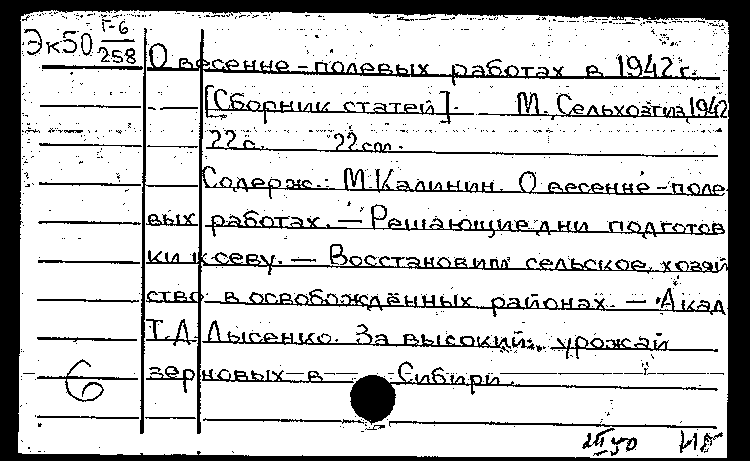 Эк50 Г-6
258
О весенне-полевых работах в 1942 г.
[Сборник статей]. М., Сельхозгиз, 1942
22 с. 22 см.
Содерж.: М.Калинин. О весенне-поле
вых работах. — Решающие дни подготов
ки к севу. — Восстановим сельское хозяй
ство в освобождённых районах. — Акад
Т.Д. Лысенко. За высокий урожай
зерновых в Сибири.
6